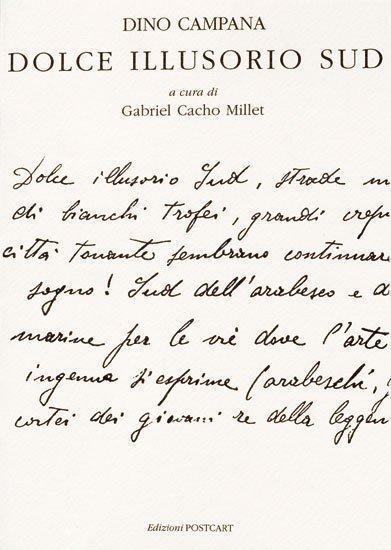 DINO CAMPANA
DOLCE ILLUSORIO SUD
a cura di
Gabriel Cacho Millet
Dolce illusorio Sud, strade m
di bianchi trofei, grandi crepu
città tonante sembrano continuare
sogno! Sud dell'arabesco e d
marine per le vie dove l'arte
ingenua si esprime (arabeschi,
cortei dei giovani re della leggen
Edizioni POSTCART